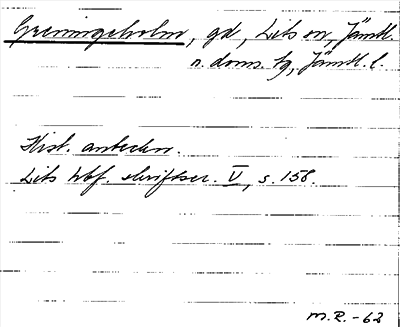 Greningeholm, gd, Lits sn, Jämtl.
n. doms. tg, Jämtl. l.
Hist. anteckn.
Lits hbf. skriftser. V, s. 158.
M.R.-62